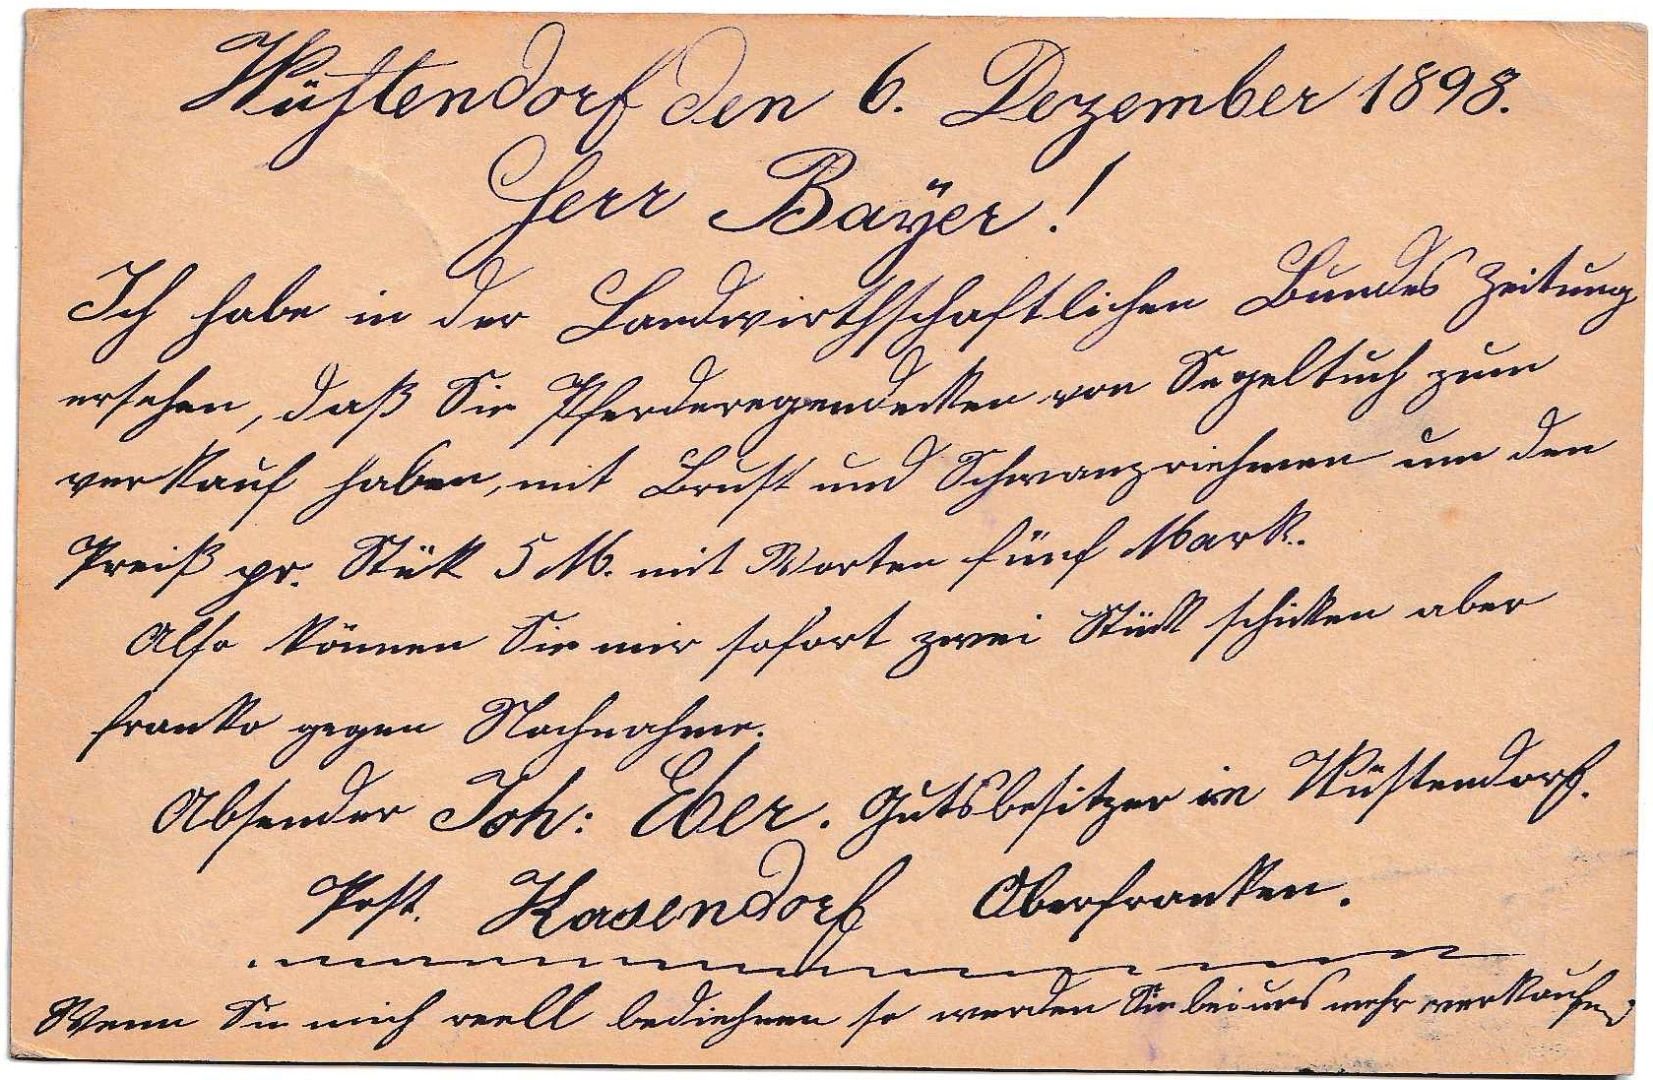 Wüstendorf den 6. Dezember 1898.
Herr Bayer!
Ich habe in der Landwirthschaftlichen Bundes Zeitung
ersehen, daß Sie Pferderegendecken von Segeltuch zum
verkauf haben, mit Brust und Schwanzriehmen um den
Preiß pr. Stük 5 M. mit Worten fünf Mark.
Also können Sie mir sofort zwei Stück schicken aber
franko gegen Nachnahme.
Absender Joh: Eber. Gutsbesitzer in Wüstendorf.
Post. Kasendorf Oberfranken.
Wenn Sie mich reell bediehnen so werden Sie bei uns mehr verkaufen